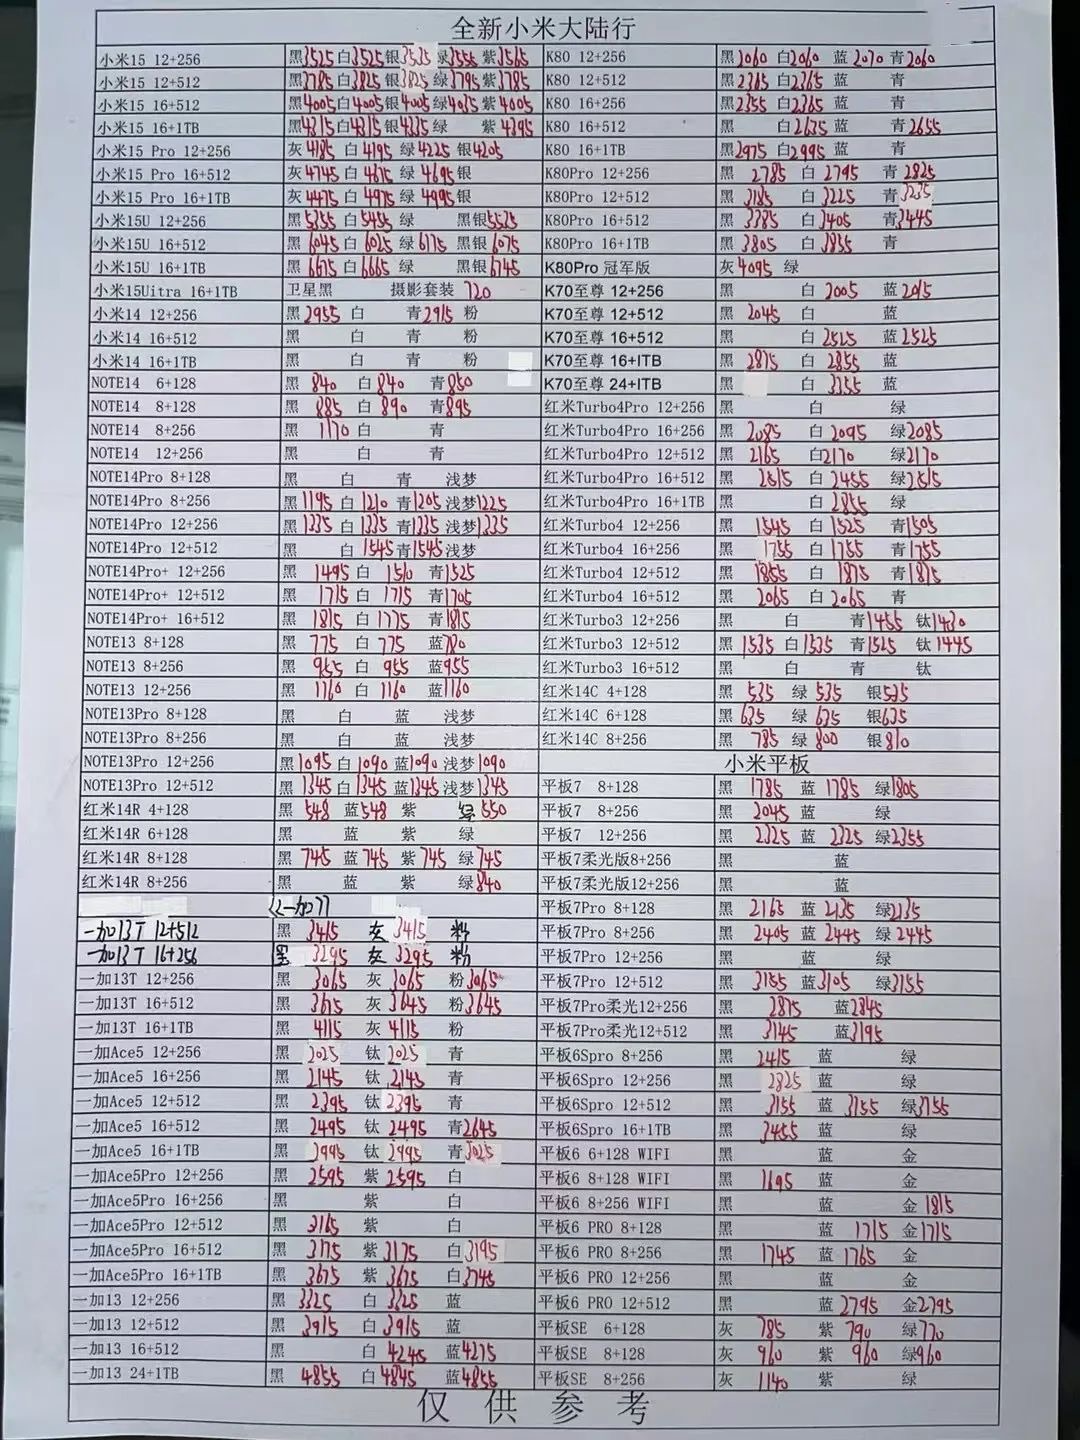 全新小米大陆行
小米15 12+256 黑3525 白3525 银3535 绿3555 紫3565 K80 12+256 黑2060 白2060 蓝2070 青2060
小米15 12+512 黑3785 白3825 银3825 绿3795 紫3785 K80 12+512 黑2365 白2365 蓝 青
小米15 16+512 黑4005 白4005 银4005 绿4035 紫4005 K80 16+256 黑2355 白2365 蓝 青
小米15 16+1TB 黑4315 白4315 银4335 绿 紫4395 K80 16+512 黑 白2635 蓝 青2655
小米15 Pro 12+256 灰4185 白4195 绿4225 银4205 K80 16+1TB 黑2975 白2995 蓝 青
小米15 Pro 16+512 灰4745 白4675 绿4695 银 K80Pro 12+256 黑2785 白2795 青2825
小米15 Pro 16+1TB 灰4475 白4975 绿4995 银 K80Pro 12+512 黑3185 白3225 青3235
小米15U 12+256 黑5355 白5455 绿 黑银5525 K80Pro 16+512 黑3385 白3405 青3445
小米15U 16+512 黑6045 白6025 绿6175 黑银6075 K80Pro 16+1TB 黑3805 白3855 青
小米15U 16+1TB 黑6675 白6665 绿 黑银6745 K80Pro 冠军版 灰4095 绿
小米15Uitra 16+1TB 卫星黑 摄影套装 720 K70至尊 12+256 黑 白2005 蓝2015
小米14 12+256 黑2955 白 青2915 粉 K70至尊 12+512 黑2045 白 蓝
小米14 16+512 黑 白 青 粉 K70至尊 16+512 黑 白2525 蓝2525
小米14 16+1TB 黑 白 青 粉 K70至尊 16+ITB 黑2875 白2855 蓝
NOTE14 6+128 黑840 白840 青850 K70至尊 24+ITB 黑 白3355 蓝
NOTE14 8+128 黑885 白890 青895 红米Turbo4Pro 12+256 黑 白 绿
NOTE14 8+256 黑1170 白 青 红米Turbo4Pro 16+256 黑2085 白2095 绿2085
NOTE14 12+256 黑 白 青 红米Turbo4Pro 12+512 黑2165 白2170 绿2170
NOTE14Pro 8+128 黑 白 青 浅梦 红米Turbo4Pro 16+512 黑2515 白2455 绿2515
NOTE14Pro 8+256 黑1195 白1210 青1205 浅梦1225 红米Turbo4Pro 16+1TB 黑 白2855 绿
NOTE14Pro 12+256 黑1335 白1335 青1335 浅梦1335 红米Turbo4 12+256 黑1545 白1525 青1505
NOTE14Pro 12+512 黑 白1545 青1545 浅梦 红米Turbo4 16+256 黑1755 白1755 青1755
NOTE14Pro+ 12+256 黑1495 白1510 青1525 红米Turbo4 12+512 黑1855 白1875 青1815
NOTE14Pro+ 12+512 黑1715 白1715 青1705 红米Turbo4 16+512 黑2065 白2065 青
NOTE14Pro+ 16+512 黑1815 白1775 青1815 红米Turbo3 12+256 黑 白 青1455 钛1430
NOTE13 8+128 黑775 白775 蓝780 红米Turbo3 12+512 黑1535 白1535 青1525 钛1445
NOTE13 8+256 黑955 白955 蓝955 红米Turbo3 16+512 黑 白 青 钛
NOTE13 12+256 黑1160 白1160 蓝1160 红米14C 4+128 黑535 绿535 银535
NOTE13Pro 8+128 黑 白 蓝 浅梦 红米14C 6+128 黑635 绿635 银635
NOTE13Pro 8+256 黑 白 蓝 浅梦 红米14C 8+256 黑785 绿800 银810
NOTE13Pro 12+256 黑1095 白1090 蓝1090 浅梦1090 小米平板
NOTE13Pro 12+512 黑1345 白1345 蓝1345 浅梦1345 平板7 8+128 黑1785 蓝1785 绿1805
红米14R 4+128 黑548 蓝548 紫 绿550 平板7 8+256 黑2045 蓝 绿
红米14R 6+128 黑 蓝 紫 绿 平板7 12+256 黑2325 蓝2325 绿2355
红米14R 8+128 黑745 蓝745 紫745 绿745 平板7柔光版8+256 黑 蓝
红米14R 8+256 黑 蓝 紫 绿840 平板7柔光版12+256 黑 蓝
《一加》 平板7Pro 8+128 黑2165 蓝2135 绿2135
一加13T 12+512 黑3415 灰3415 粉 平板7Pro 8+256 黑2405 蓝2445 绿2445
一加13T 16+256 黑3295 灰3295 粉 平板7Pro 12+256 黑 蓝 绿
一加13T 12+256 黑3065 灰3065 粉3065 平板7Pro 12+512 黑3155 蓝3105 绿3155
一加13T 16+512 黑3675 灰3645 粉3645 平板7Pro柔光12+256 黑2875 蓝2845
一加13T 16+1TB 黑4115 灰4115 粉 平板7Pro柔光12+512 黑3145 蓝3195
一加Ace5 12+256 黑2025 钛2025 青 平板6Spro 8+256 黑2415 蓝 绿
一加Ace5 16+256 黑2145 钛2145 青 平板6Spro 12+256 黑2825 蓝 绿
一加Ace5 12+512 黑2395 钛2395 青 平板6Spro 12+512 黑3155 蓝3155 绿3155
一加Ace5 16+512 黑2495 钛2495 青2645 平板6Spro 16+1TB 黑3455 蓝 绿
一加Ace5 16+1TB 黑2995 钛2995 青3025 平板6 6+128 WIFI 黑 蓝 金
一加Ace5Pro 12+256 黑2595 紫2595 白 平板6 8+128 WIFI 黑1695 蓝 金
一加Ace5Pro 16+256 黑 紫 白 平板6 8+256 WIFI 黑 蓝 金1815
一加Ace5Pro 12+512 黑3165 紫 白 平板6 PRO 8+128 黑 蓝1715 金1715
一加Ace5Pro 16+512 黑3175 紫3175 白3195 平板6 PRO 8+256 黑1745 蓝1765 金
一加Ace5Pro 16+1TB 黑3675 紫3675 白3745 平板6 PRO 12+256 黑 蓝 金
一加13 12+256 黑3325 白3325 蓝 平板6 PRO 12+512 黑 蓝2795 金2795
一加13 12+512 黑3915 白3915 蓝 平板SE 6+128 灰785 紫790 绿770
一加13 16+512 黑 白4245 蓝4275 平板SE 8+128 灰960 紫960 绿960
一加13 24+1TB 黑4855 白4845 蓝4855 平板SE 8+256 灰1140 紫 绿
仅供参考